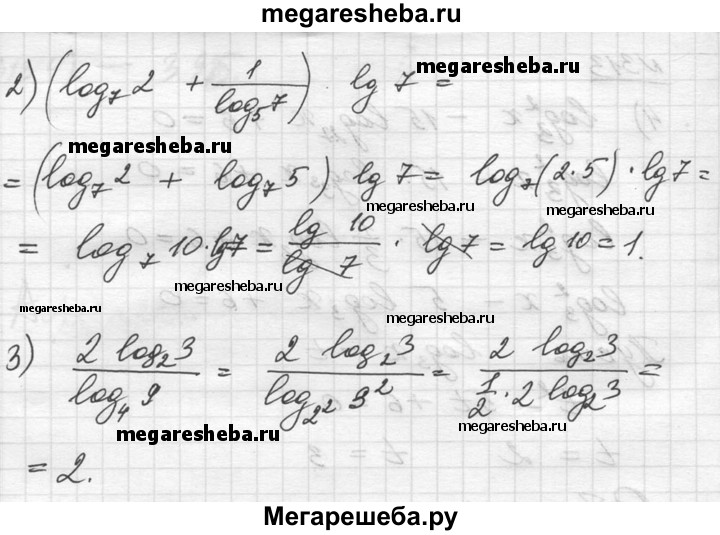 megaresheba.ru
2) (log₇ 2 + 1/log₅ 7) lg 7 =
megaresheba.ru
megaresheba.ru
= (log₇ 2 + log₇ 5) lg 7 = log₇(2·5) · lg 7 =
megaresheba.ru
= log₇ 10 · lg 7 = lg 10 / lg 7 · lg 7 = lg 10 = 1.
megaresheba.ru
megaresheba.ru
megaresheba.ru
3) 2 log₂ 3 / log₄ 9 = 2 log₂ 3 / log₂² 3² = 2 log₂ 3 / (1/2 · 2 log₂ 3) =
megaresheba.ru
megaresheba.ru
= 2.
Мегарешеба.ру